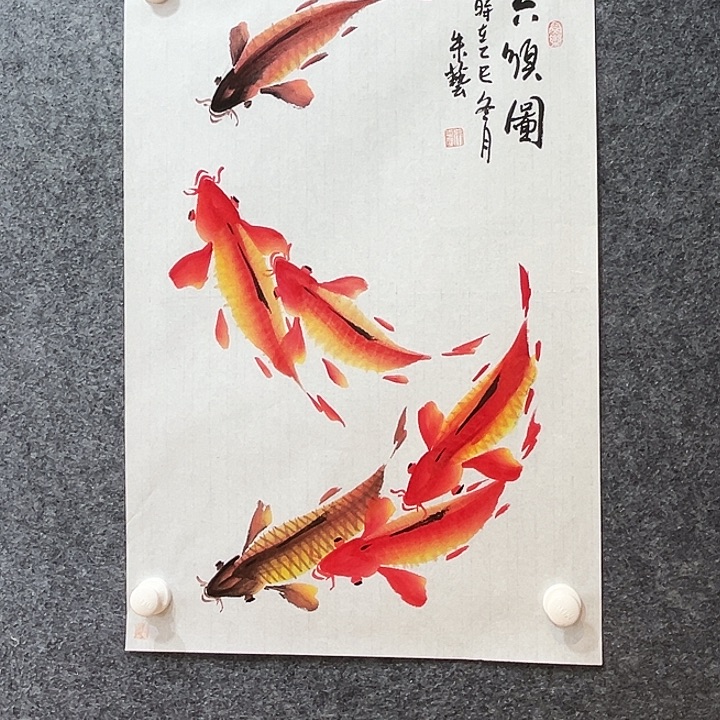 六順圖
時在乙巳冬月
朱藝